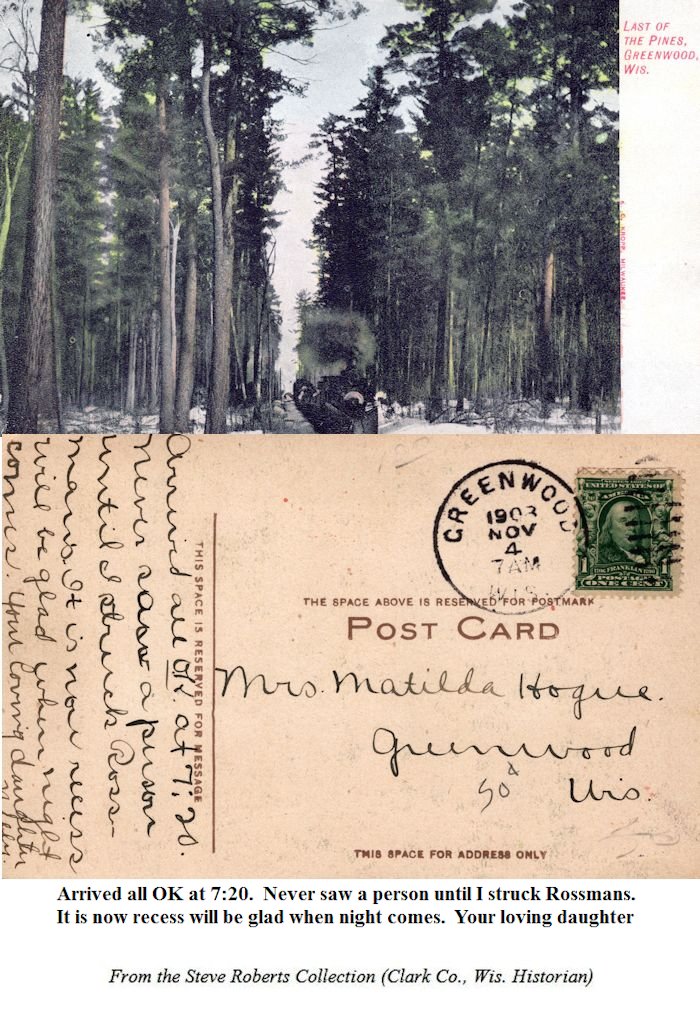 LAST OF
THE PINES,
GREENWOOD,
WIS.
E. C. KROPP, MILWAUKEE
Arrived all OK. at 7:20.
Never saw a person
until I struck Ross-
mans. It is now recess
will be glad when night
comes. Your loving daughter
THIS SPACE IS RESERVED FOR MESSAGE
GREENWOOD
1908
NOV
4
7AM
WIS.
SERIES 1902
UNITED STATES OF
AMERICA
FRANKLIN
1 POSTAGE 1
ONE CENT
THE SPACE ABOVE IS RESERVED FOR POSTMARK
POST CARD
Mrs. Matilda Hogue.
Greenwood
Wis.
THIS SPACE FOR ADDRESS ONLY
Arrived all OK at 7:20. Never saw a person until I struck Rossmans.
It is now recess will be glad when night comes. Your loving daughter
From the Steve Roberts Collection (Clark Co., Wis. Historian)